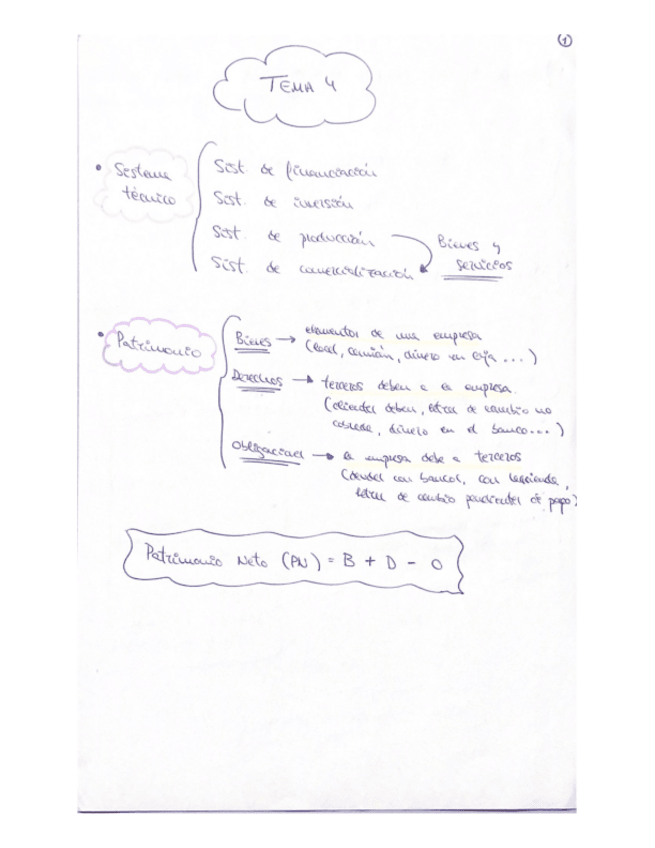 1
TEMA 4
• Sistema
técnico
Sist. de financiación
Sist. de inversión
Sist. de producción
Sist. de comercialización
Bienes y
servicios
• Patrimonio
Bienes → elementos de una empresa
(local, camión, dinero en caja ...)
Derechos → terceros deben a la empresa.
(clientes deben, letras de cambio no
cobrada, dinero en el banco...)
Obligaciones → la empresa debe a terceros
(deudas con bancos, con hacienda,
letras de cambio pendientes de pago)
Patrimonio Neto (PN) = B + D - O